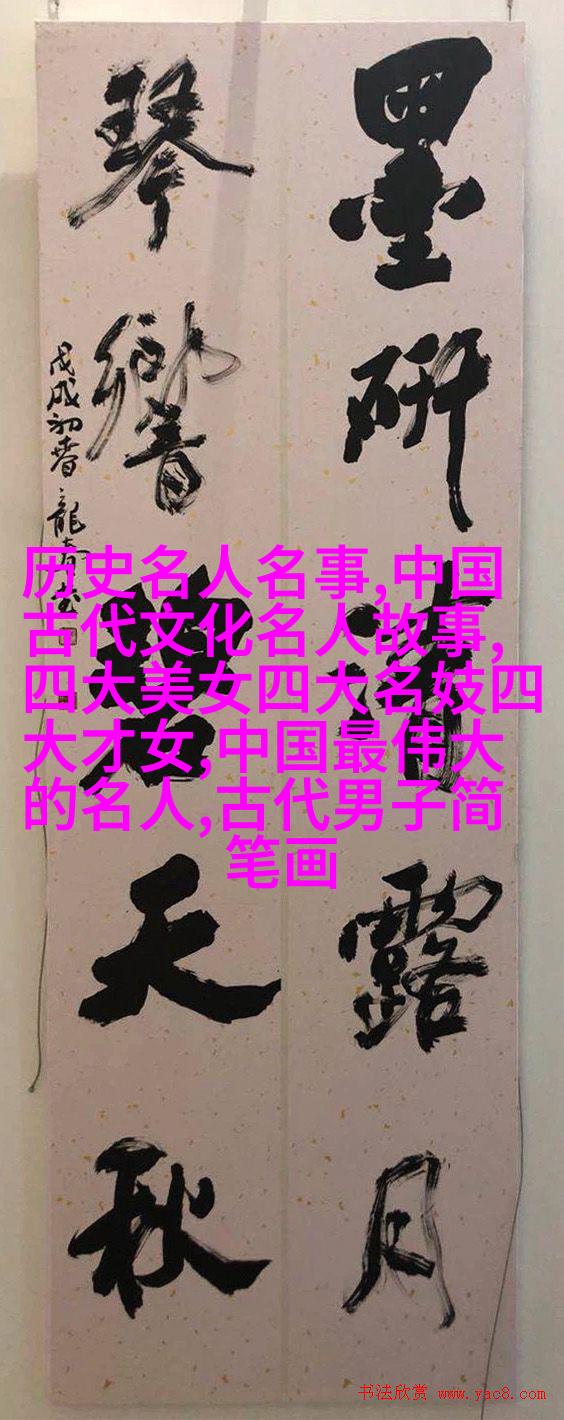 墨研清露月
琴響碧天秋
戊戌初春
历史名人名事,中国
古代文化名人故事,
四大美女四大名妓四
大才女,中国最伟大
的名人,古代男子简
笔画
书法欣赏 www.yac8.com